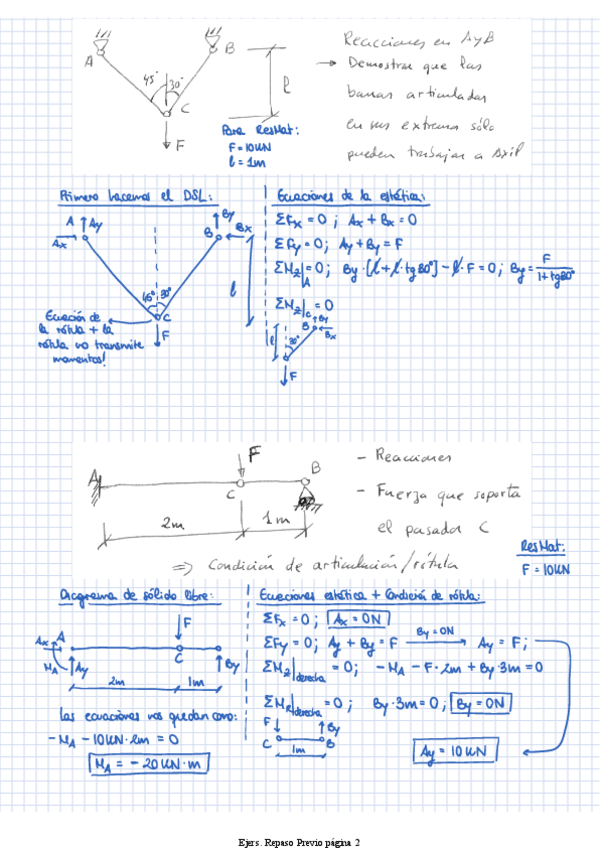 A
B
Reacciones en A y B
→ Demostrar que las
barras articuladas
en sus extremos sólo
pueden trabajar a Axil
45°
30°
C
F
l
Para ResMat:
F = 10KN
l = 1m
Primero hacemos el DSL:
A Ay
Ax
By
B Bx
45° 30°
C
F
l
Ecuación de
la rótula + la
rótula no transmite
momentos!
Ecuaciones de la estática:
ΣFx = 0 ; Ax + Bx = 0
ΣFy = 0; Ay + By = F
ΣMz|A = 0; By · [l + l · tg30°] - l · F = 0; By = F / 1 + tg30°
ΣMz|C = 0
By
B Bx
l
30°
F
A
F
B
C
2m
1m
- Reacciones
- Fuerza que soporta
el pasador C
⇒ Condición de articulación/rótula
ResMat:
F = 10KN
Diagrama de sólido libre:
Ax A
MA Ay
F
C
By
2m 1m
Las ecuaciones nos quedan como:
-MA - 10KN·2m = 0
MA = - 20 KN·m
Ecuaciones estática + Condición de rótula:
ΣFx = 0; Ax = 0N
ΣFy = 0; Ay + By = F By = 0N → Ay = F;
ΣMz|derecha = 0; -MA - F · 2m + By · 3m = 0
ΣMz|derecha = 0; By · 3m = 0; By = 0N
F
By
C B
1m
Ay = 10 KN
Ejers. Repaso Previo página 2